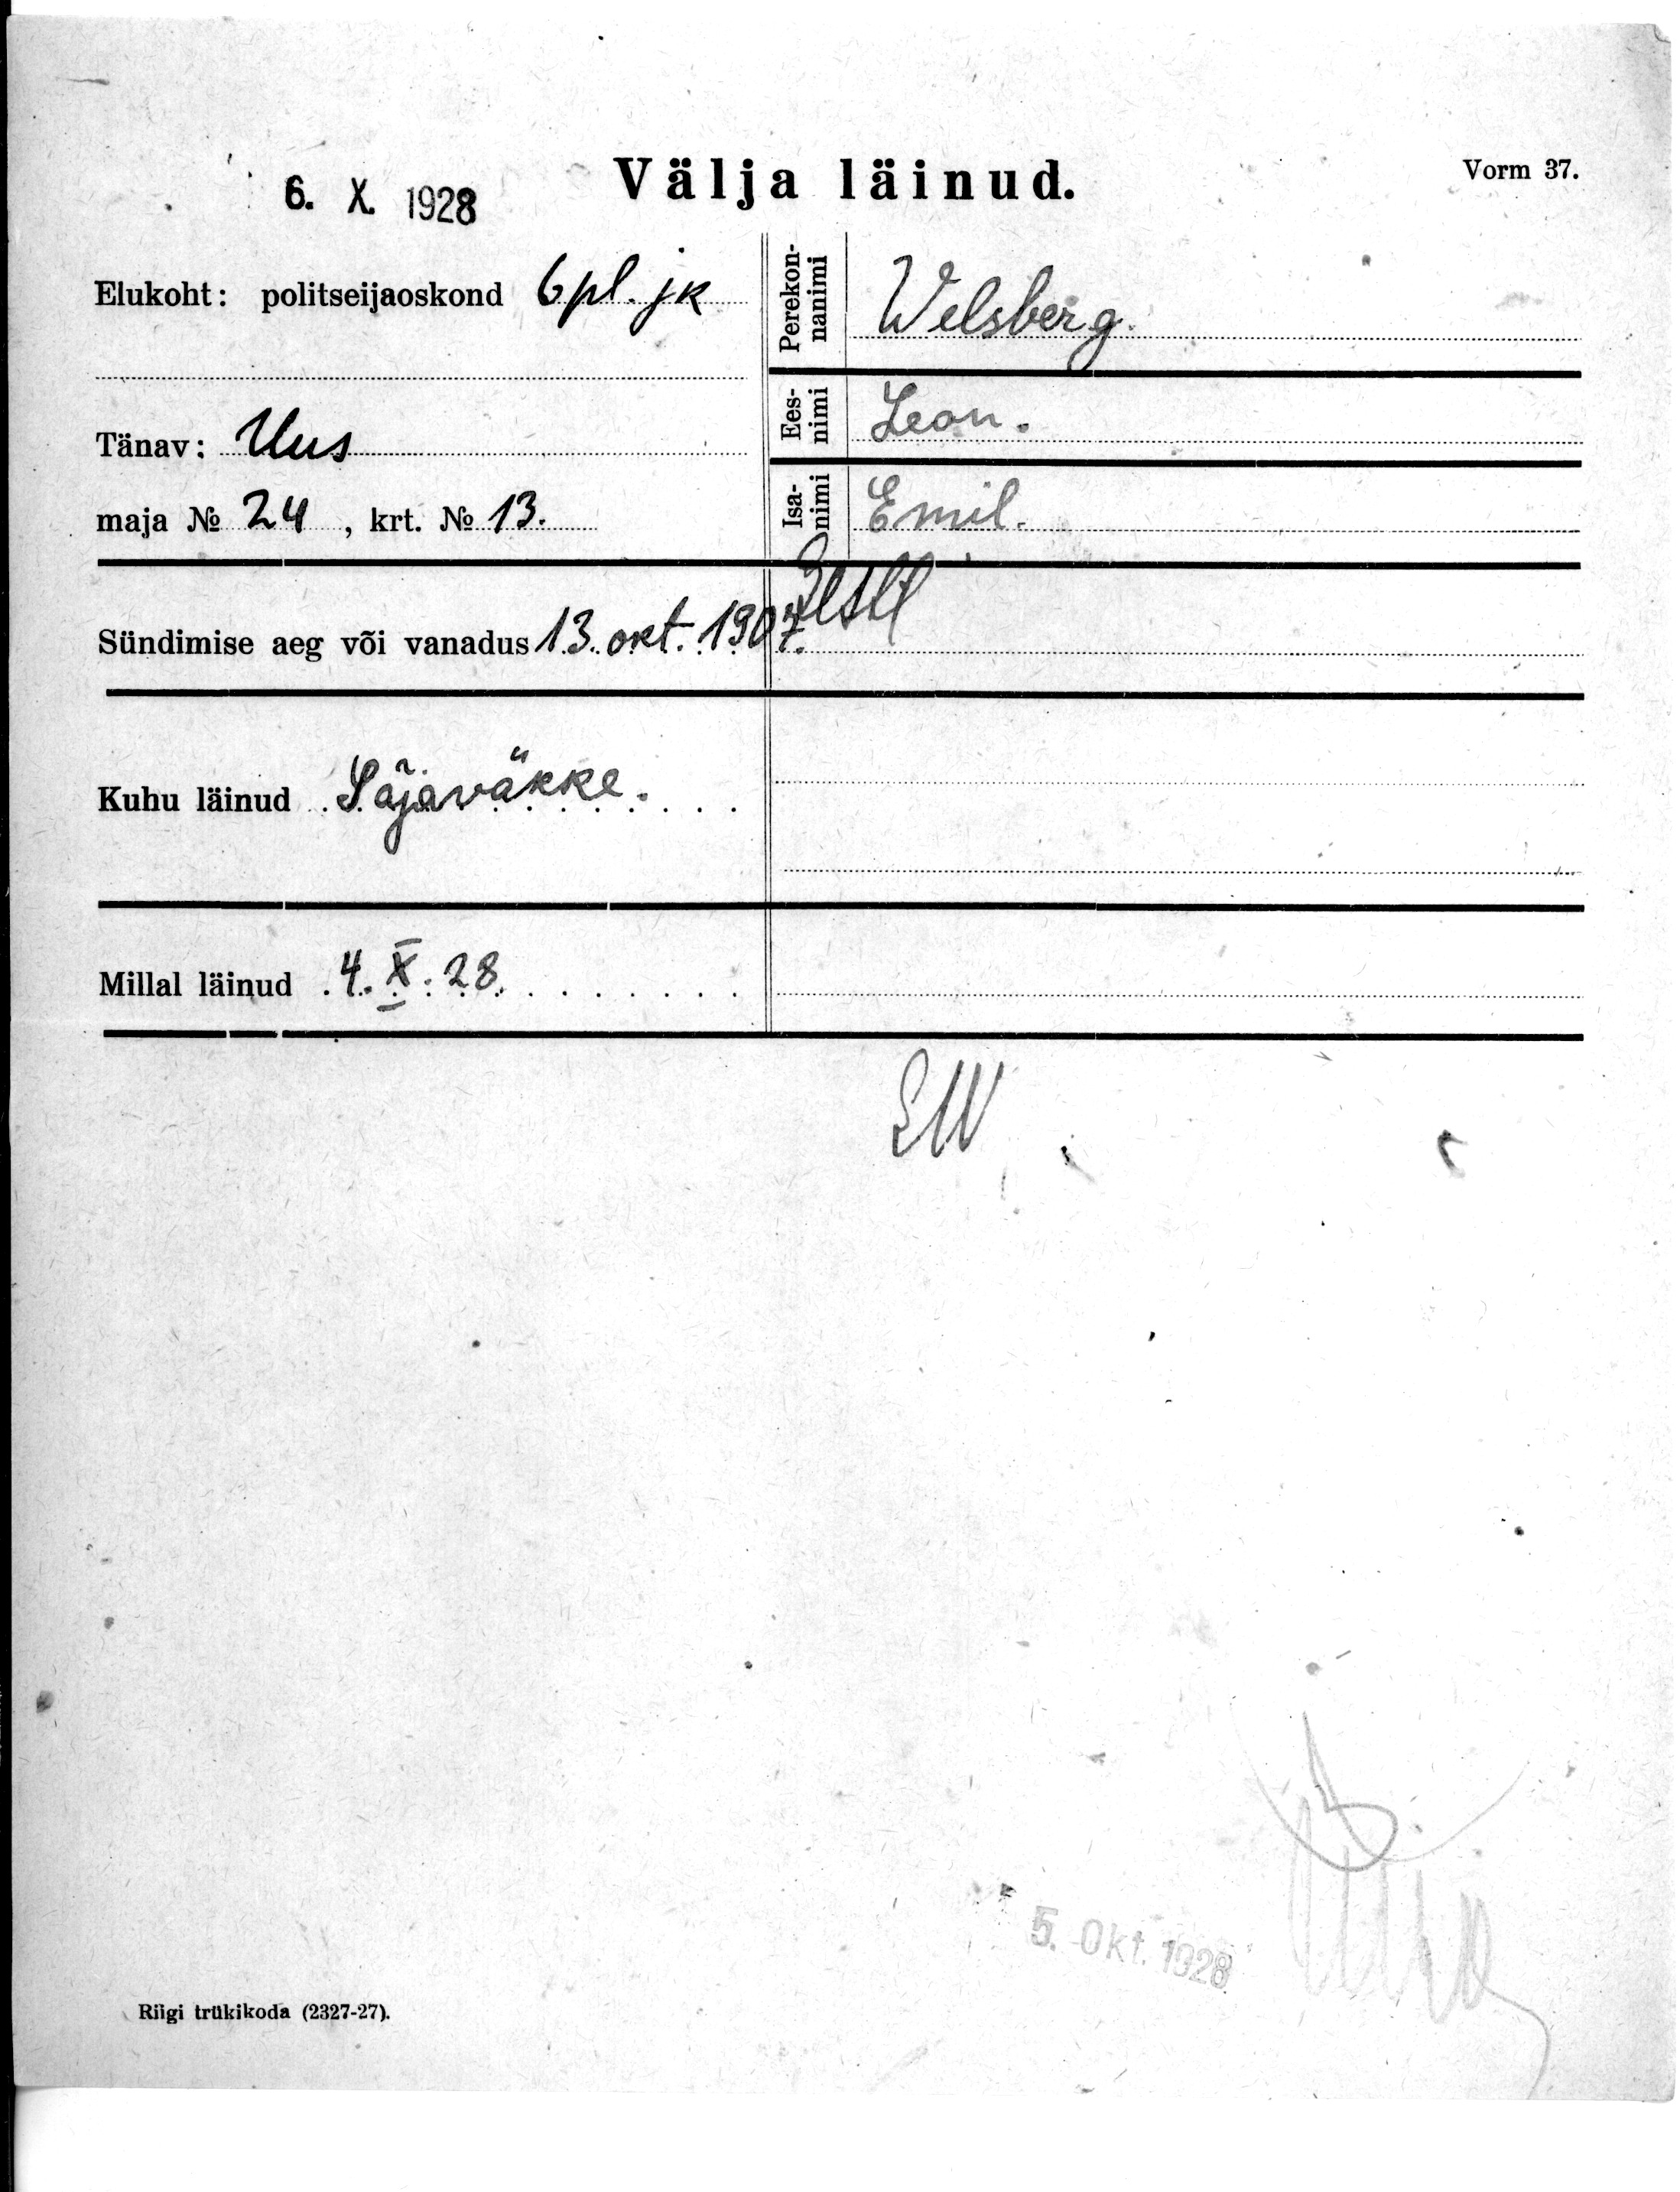 6. X. 1928
Välja läinud.
Vorm 37.
Elukoht: politseijaoskond 6 pl. jk
Tänav: Uus
maja № 24, krt. № 13.
Perekonnanimi Welsberg.
Eesnimi Leon.
Isanimi Emil.
Sündimise aeg või vanadus 13. okt. 1907.
Kuhu läinud Sõjaväkke.
Millal läinud 4. X. 28.
5. Okt. 1928
Riigi trükikoda (2327-27).